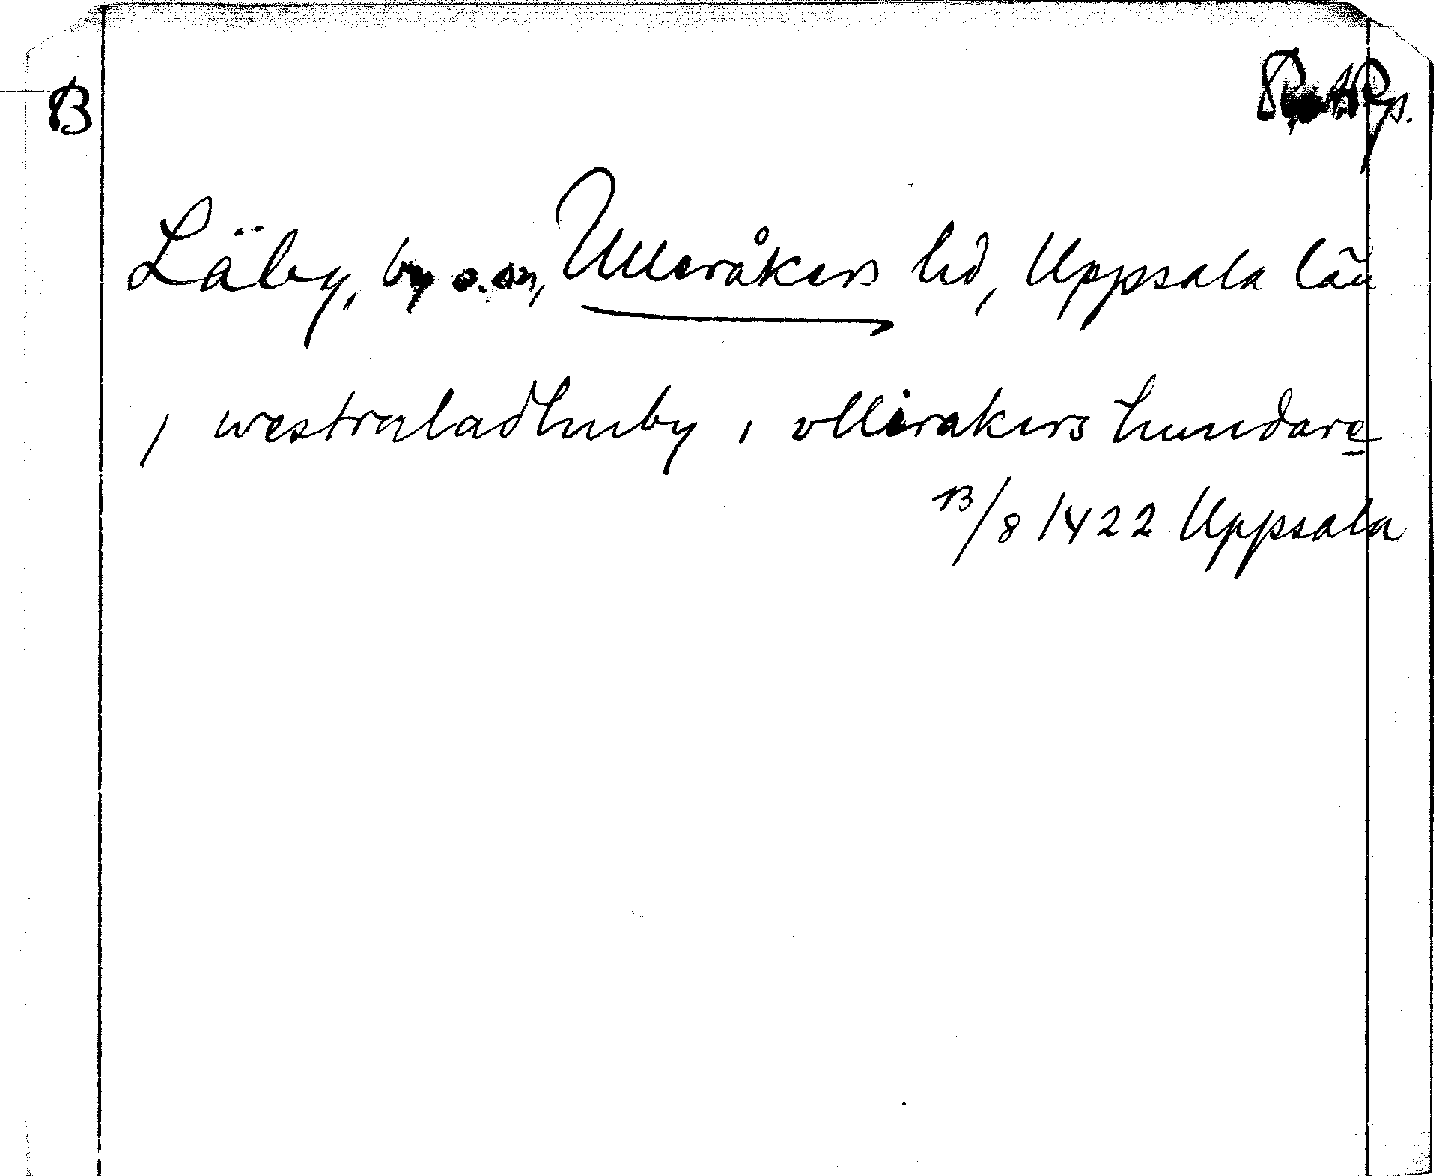 B
RAp.
Läby, by o. sn, Ulleråkers hd, Uppsala län
i westraladhuby i vllerakers hundare
13/8 1422 Uppsala